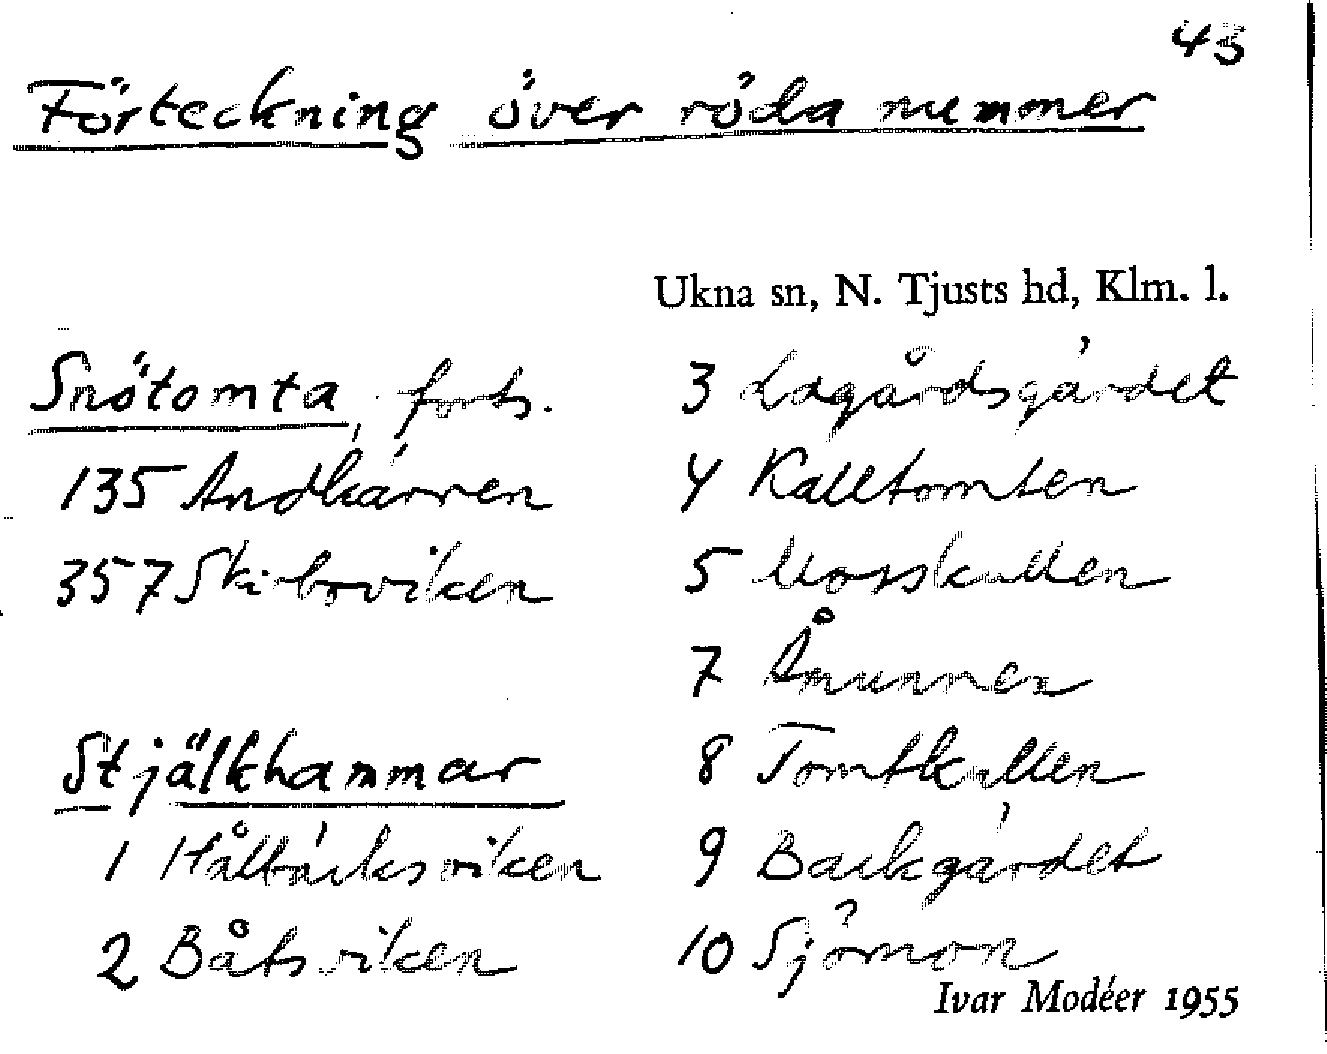 43
Förteckning över röda nummer
Ukna sn, N. Tjusts hd, Klm. l.
Snötomta, forts.
135 Andkärren
357 Skirboviken
Stjälkhammar
1 Hålbäcksviken
2 Båtsviken
3 Lagårdsgärdet
4 Kalltomten
5 Mosskullen
7 Åmunnen
8 Tomtkullen
9 Backgärdet
10 Sjömon
Ivar Modéer 1955